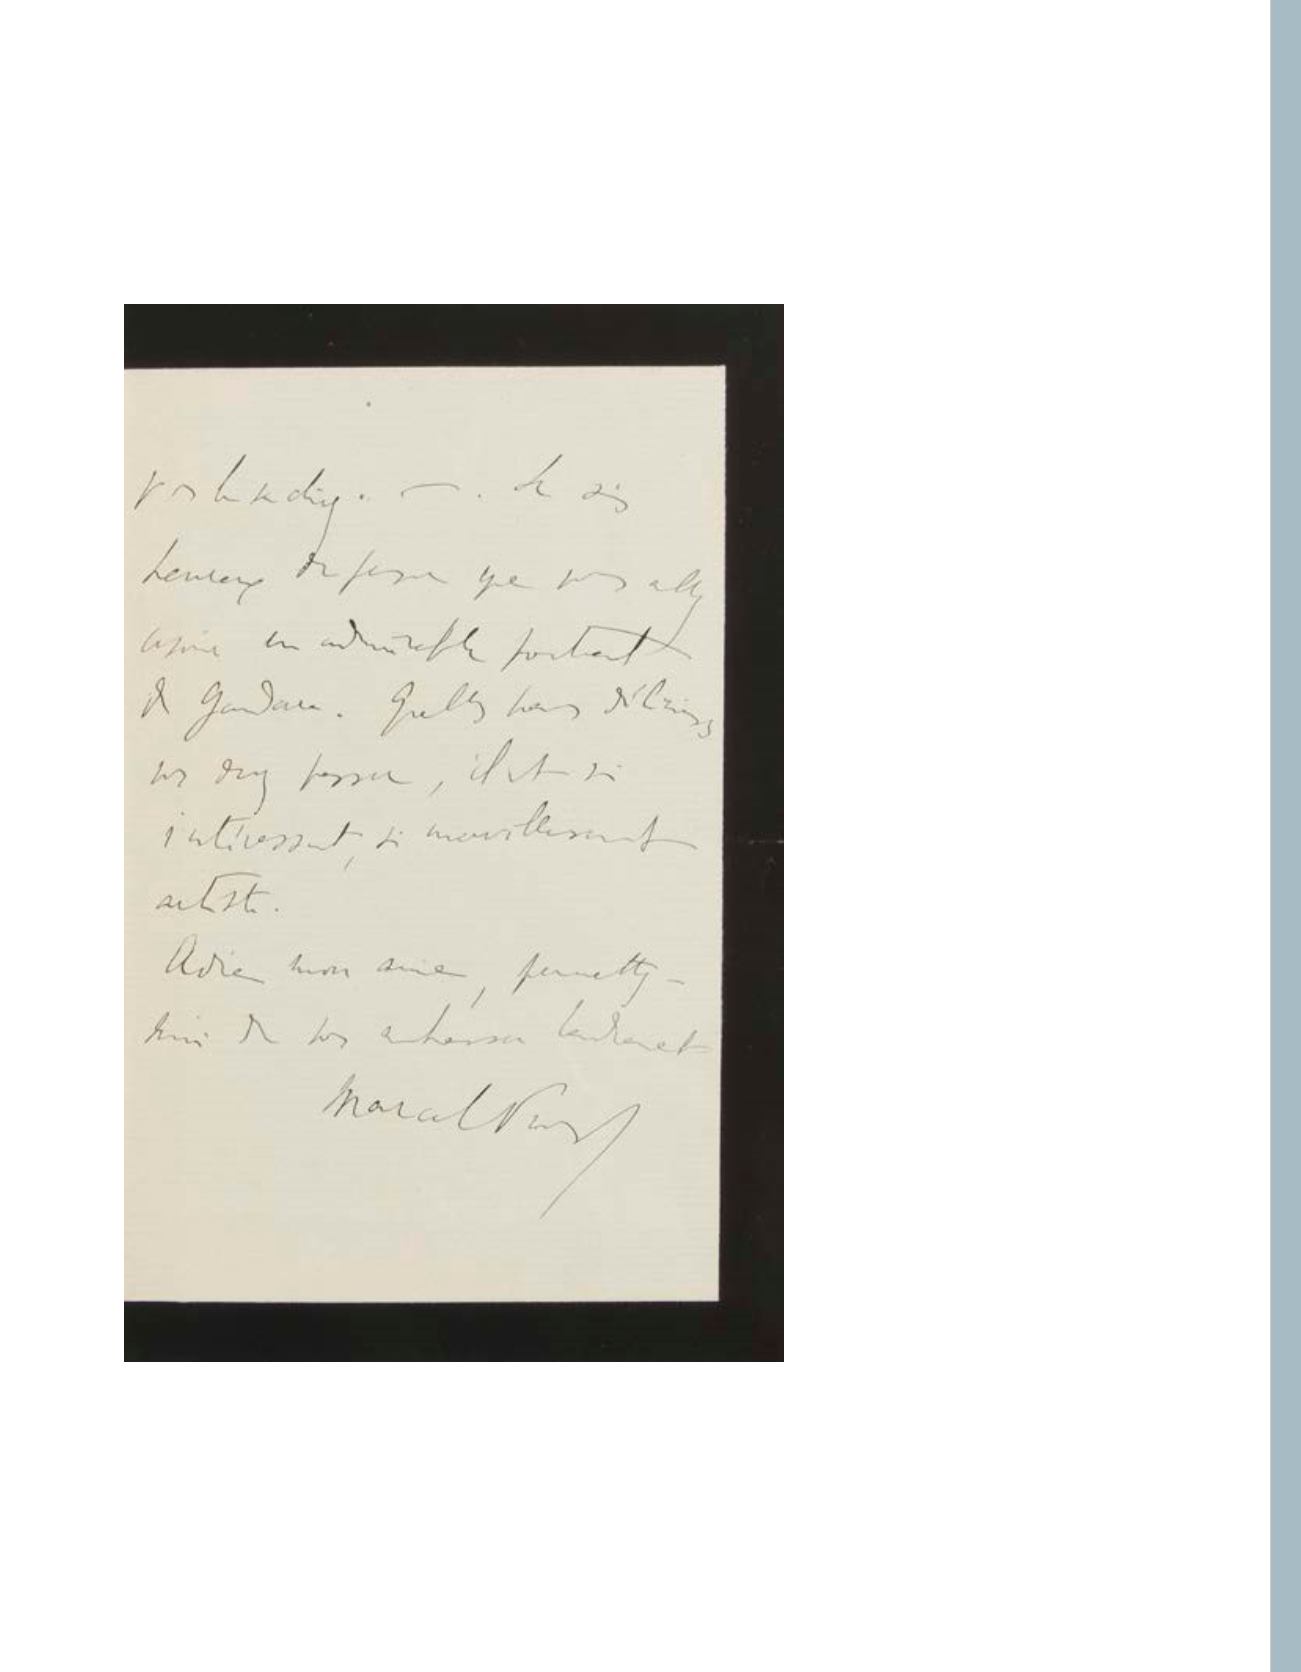 vous le de diez. —. Je suis
heureux de penser que vous allez
avoir un admirable portrait
de Gandara. Quelles heures délicieuses
vous devez passer, il est si
intéressant, si merveilleusement
artiste.
Adieu mon amie, permettez-
moi de vous embrasser tendrement
Marcel Proust